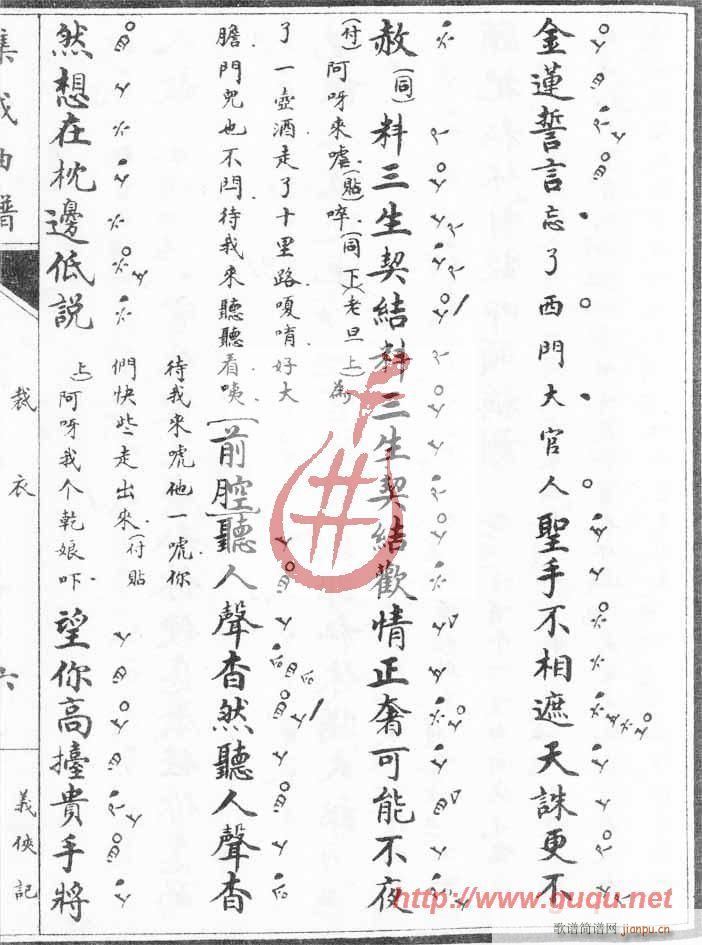 金蓮誓言忘了西門大官人聖手不相遮天誅更不
赦(同)料三生契結料三生契結歡情正奢可能不夜
(付)阿呀來嘘(貼)啐(同下)(老旦上)為
了一壺酒走了十里路嗄唷好大
膽門兒也不閂待我來聽聽看咦[前腔]聽人聲杳然聽人聲杳
待我來唬他一唬你
們快些走出來(付貼
上)阿呀我个乾娘吓
然想在枕邊低説望你高擡貴手將
集成曲譜
裁衣
六
義俠記
http://www.guqu.net
歌谱简谱网 jianpu.cn